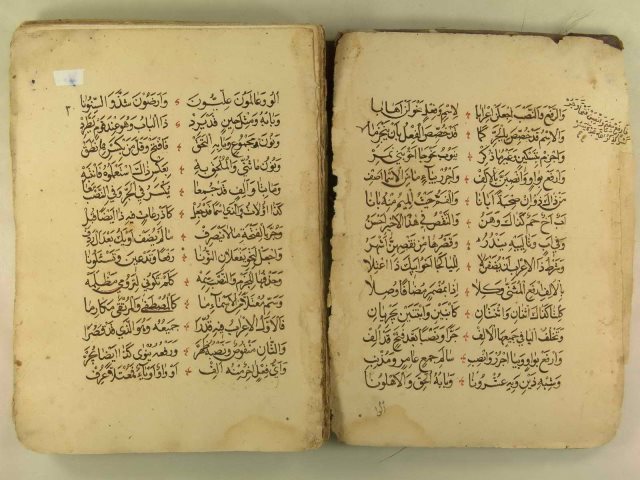 والرفع والنصب اجعلن اعرابا لاسم وفعل نحو لن اهابا
والاسم قد خصص بالجر كما قد خصص الفعل بان ينجزما
واجزم بتسكين وغير ما ذكر ينوب نحو جا اخو بني نمر
وارفع بواو وانصبن بالالف واجرر بياء ما من الاسما اصف
من ذاك ذو ان صحبة ابانا والفم حيث الميم منه بانا
اب اخ حم كذاك وهن والنقص في هذا الاخير احسن
وفي اب وتالييه يندر وقصرها من نقصهن اشهر
وشرط ذا الاعراب ان يضفن لا لليا كجا اخو ابيك ذا اعتلا
بالالف ارفع المثنى وكلا اذا بمضمر مضافا وصلا
كلتا كذاك اثنان واثنتان كابنين وابنتين يجريان
وتخلف اليا في جميعها الالف جرا ونصبا بعد فتح قد الف
وارفع بواو وبيا اجرر وانصب سالم جمع عامر ومذنب
وشبه ذين وبه عشرونا وبابه الحق والاهلونا
اولو وعالمون عليونا وارضون شذ والسنونا
وبابه ومثل حين قد يرد ذا الباب وهو عند قوم يطرد
ونون مجموع وما به التحق فافتح وقل من بكسره نطق
ونون ما ثني والملحق به بعكس ذاك استعملوه فانتبه
وما بتا والف قد جمعا يكسر في الجر وفي النصب معا
كذا اولات والذي اسما قد جعل كاذرعات فيه ذا ايضا قبل
وجر بالفتحة ما لا ينصرف ما لم يضف او يك بعد ال ردف
واجعل لنحو يفعلان النونا رفعا وتدعين وتسئلونا
وحذفها للجزم والنصب سمه كلم تكوني لترومي مظلمه
وسم معتلا من الاسماء ما كالمصطفى والمرتقي مكارما
فالاول الاعراب فيه قدرا جميعه وهو الذي قد قصرا
والثان منقوص ونصبه ظهر ورفعه ينوى كذا ايضا يجر
واي فعل اخر منه الف او واو او ياء فمعتلا عرف